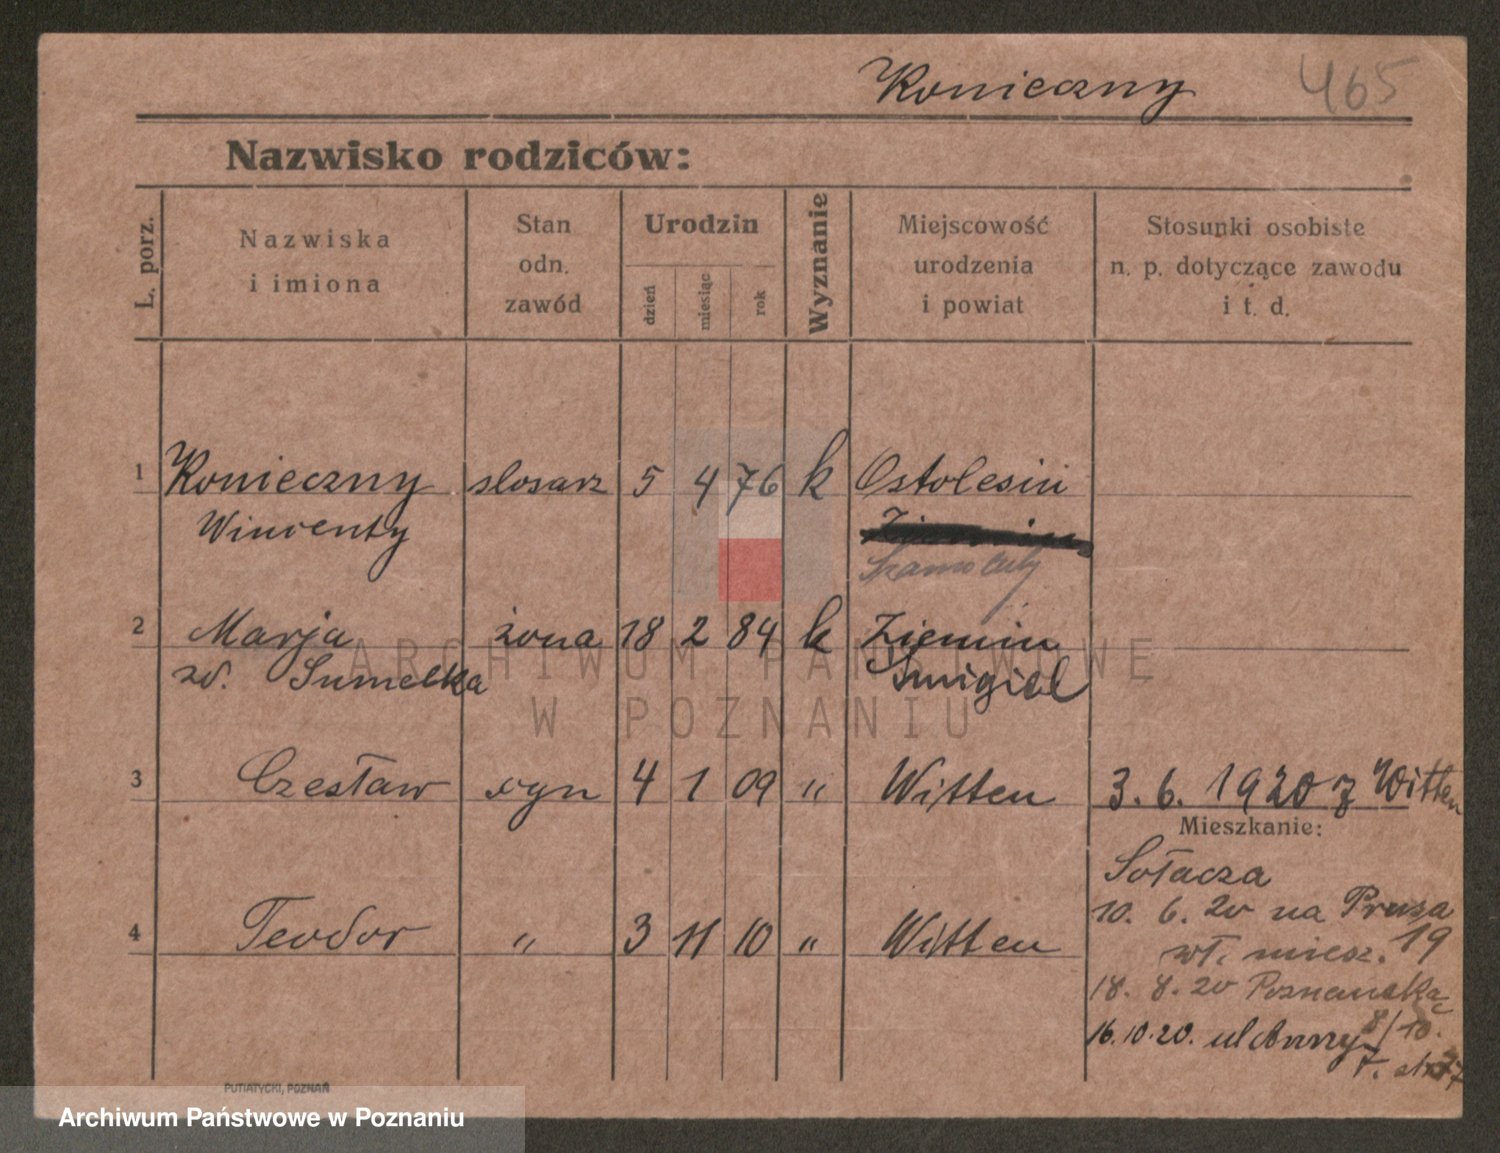 Konieczny 465
Nazwisko rodziców:
L. porz.
Nazwiska
i imiona
Stan
odn.
zawód
Urodzin
dzień
miesiąc
rok
Wyznanie
Miejscowość
urodzenia
i powiat
Stosunki osobiste
n. p. dotyczące zawodu
i t. d.
1 Konieczny slosarz 5 4 76 k Ostolesin
Wincenty
Szamotuły
2 Marja żona 18 2 84 k Ziemin
zd. Sumelka Smigiel
3 Czesław syn 4 1 09 " Witten 3. 6. 1920 z Witten
Mieszkanie:
Sołacza
10. 6. 20 na Prusa
wł. miesz. 19
4 Teodor " 3 11 10 " Witten
18. 8. 20 Poznańska
8/10.
16.10.20. ul
PUTIATYCKI, POZNAŃ
ARCHIWUM PAŃSTWOWE
W POZNANIU
Archiwum Państwowe w Poznaniu